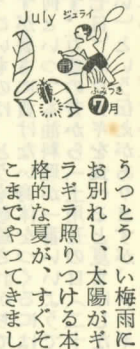 July ジュライ
ふみつき
7月
うつとうしい梅雨に
お別れし、太陽がギ
ラギラ照りつける本
格的な夏が、すぐそ
こまでやつてきまし